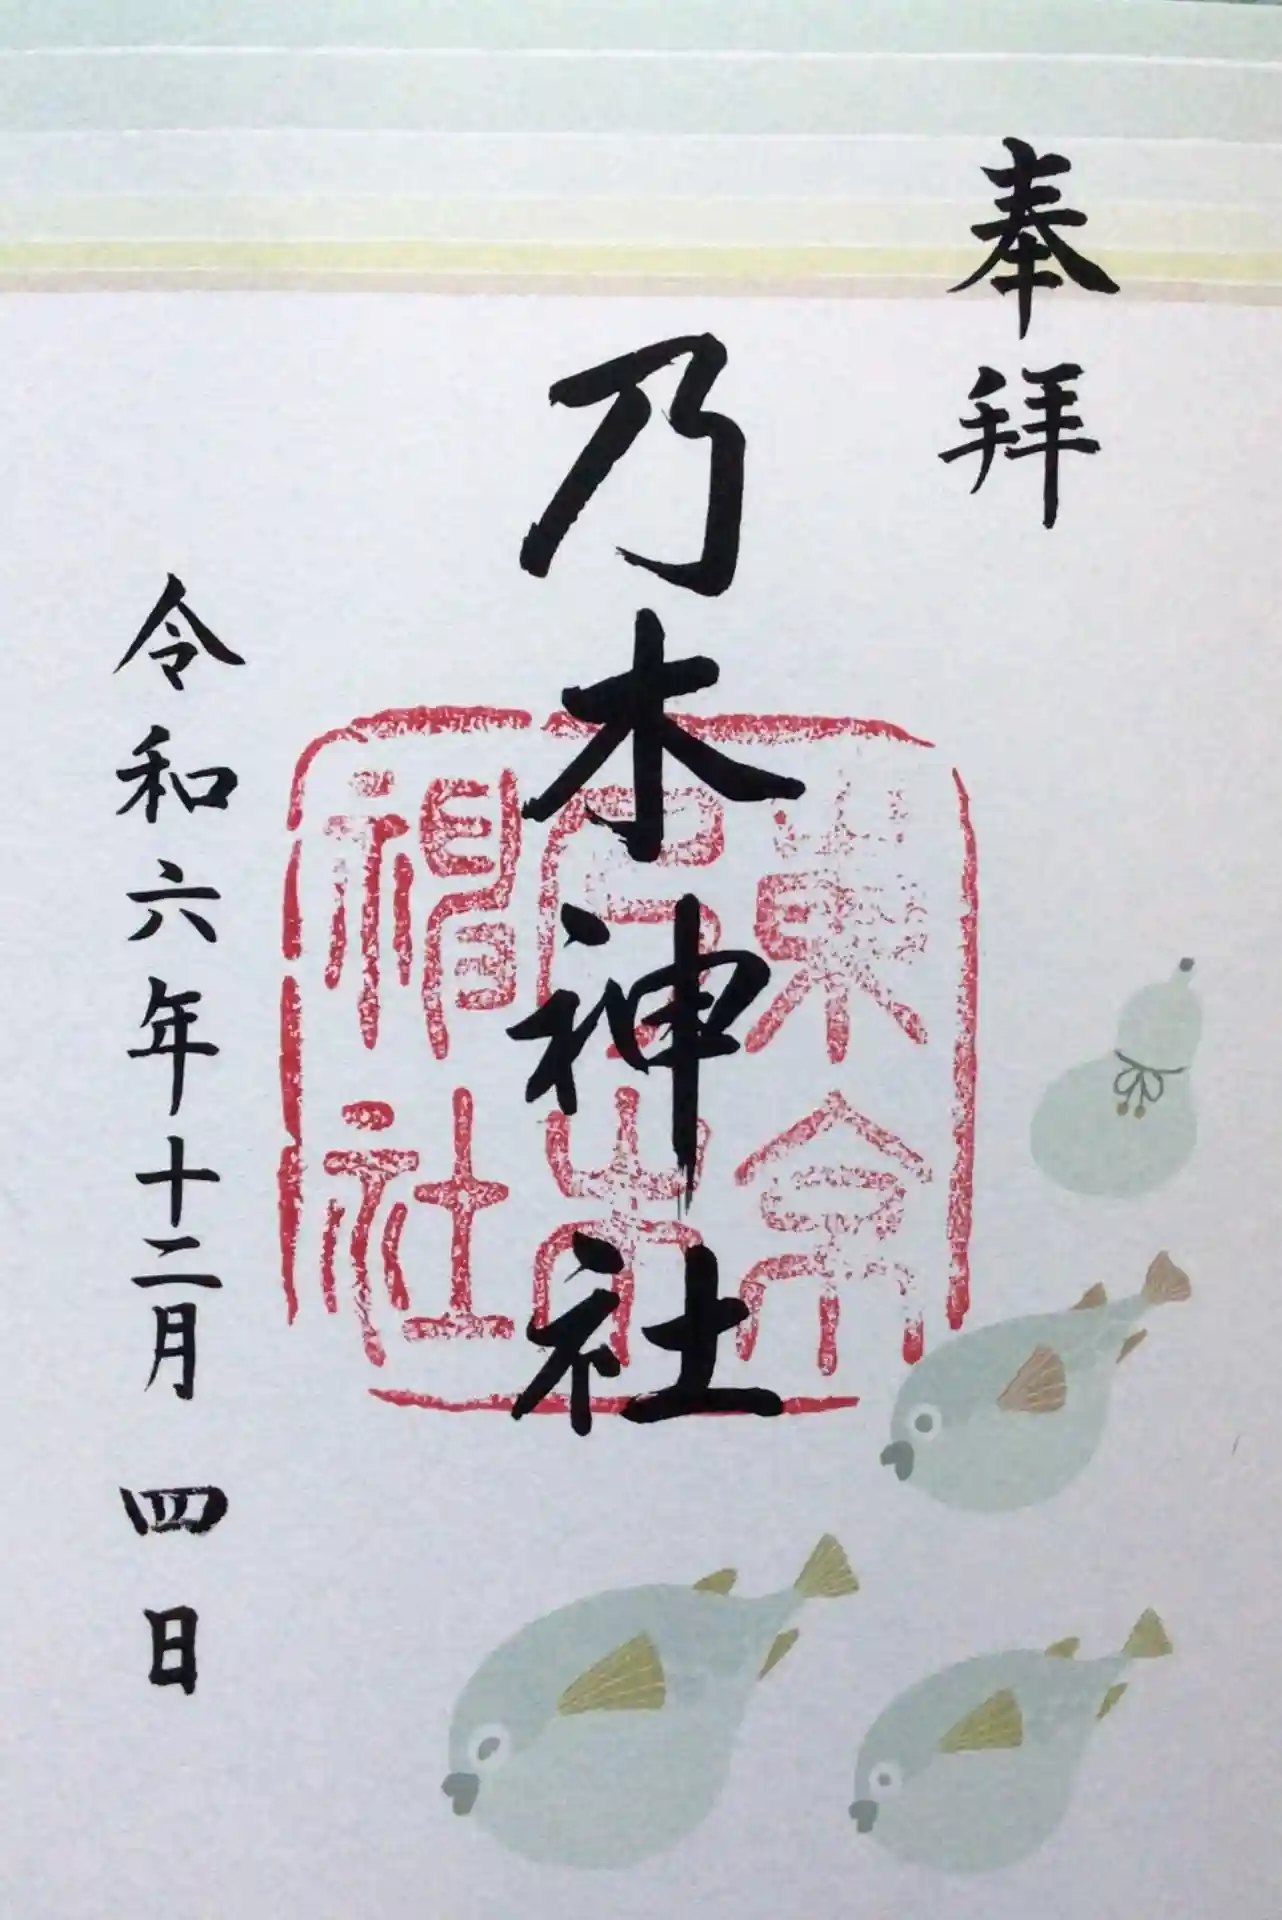 奉拝
乃木神社
東京
神社
令和六年十二月四日